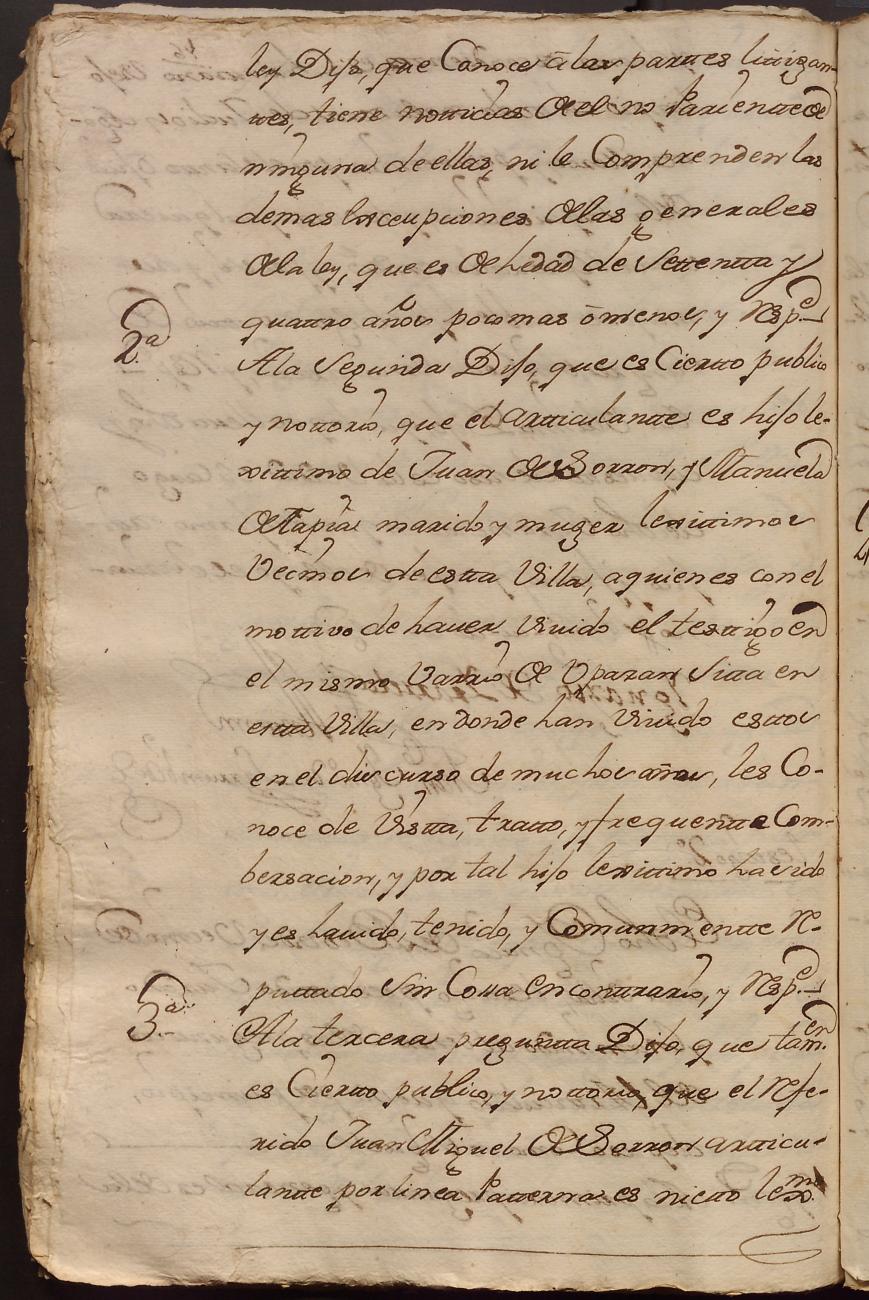 ley Dijo, que Conoce â las parttes littigan-
ttes, tiene notticias de el no Parientte de
ninguna de ellas, ni le Comprenden las
demas excepciones de las generales
de la ley, que es de hedad de Settentta y
quattro años poco mas ô menos, y Resp.e
2.a
A la Segunda Dijo, que es Ciertto publico
y nottorio, que el artticulantte es hijo le-
xittimo de Juan de Borron, y Manuela
de Tapia marido y muger lexittimos
Vecinos de estta Villa, a quienes con el
mottivo de haver Vivido el testtigo en
el mismo Varrio de Uparan Sitta en
estta Villa, en donde han Vivido esttos
en el discurso de muchos años, les Co-
noce de Vistta, tratto, y frequentte Com-
bersacion, y por tal hijo lexittimo ha sido
y es havido, tenido, y Comunmentte Re-
puttado Sin Cossa en conttrario, y Resp.e
3.a
A la tercera preguntta Dijo, que tam.en
es Ciertto publico, y nottorio, que el Refe-
rido Juan Miguel de Borron artticu-
lantte por linea Patterna es nietto lex.mo